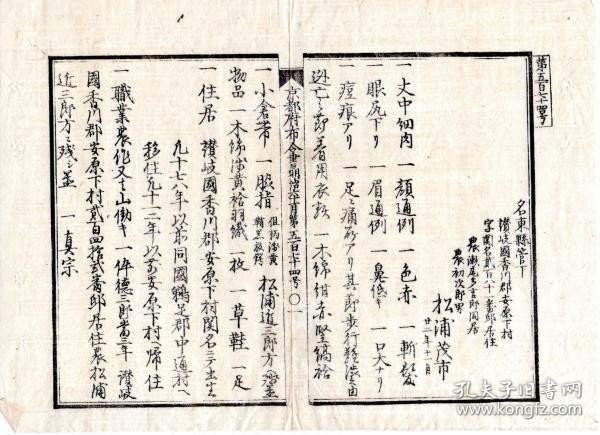 第五百七十四号
名東縣管下
讃岐國香川郡安原下村
字関名貳百八十一番邸居住
農瀬尾多吉郎同居
農初次郎男
松浦茂市
廿二年十一月
一 丈中細肉 一 顔通例 一 色赤 一 斬髪
一 眼尻下リ 一 眉通例 一 鼻低キ 一 口大ナリ
一 痘痕アリ 一 足ニ痛所アリ其節歩行難渋ノ由
逃亡之節着用衣類 一 木綿紺赤堅縞袷
京都府布令書 第五百七十四号
一 小倉帯 一 脇指 松浦近三郎方ヘ盗
物品 一 木綿浅黄袷羽織 一枚 一 草鞋 一足
一 住居 讃岐國香川郡安原下村関名ニテ出生
九十七八年以前同國鵜足郡中通村ヘ
移住九十二年以前安原下村ヘ帰住
一 職業農作又ハ山働キ 一 倅德三郎當三年 讃岐
國香川郡安原下村貳百四拾貳番邸居住農松浦
近三郎方ニ残シ置 一 真宗
孔夫子旧书网
www.kongfz.com